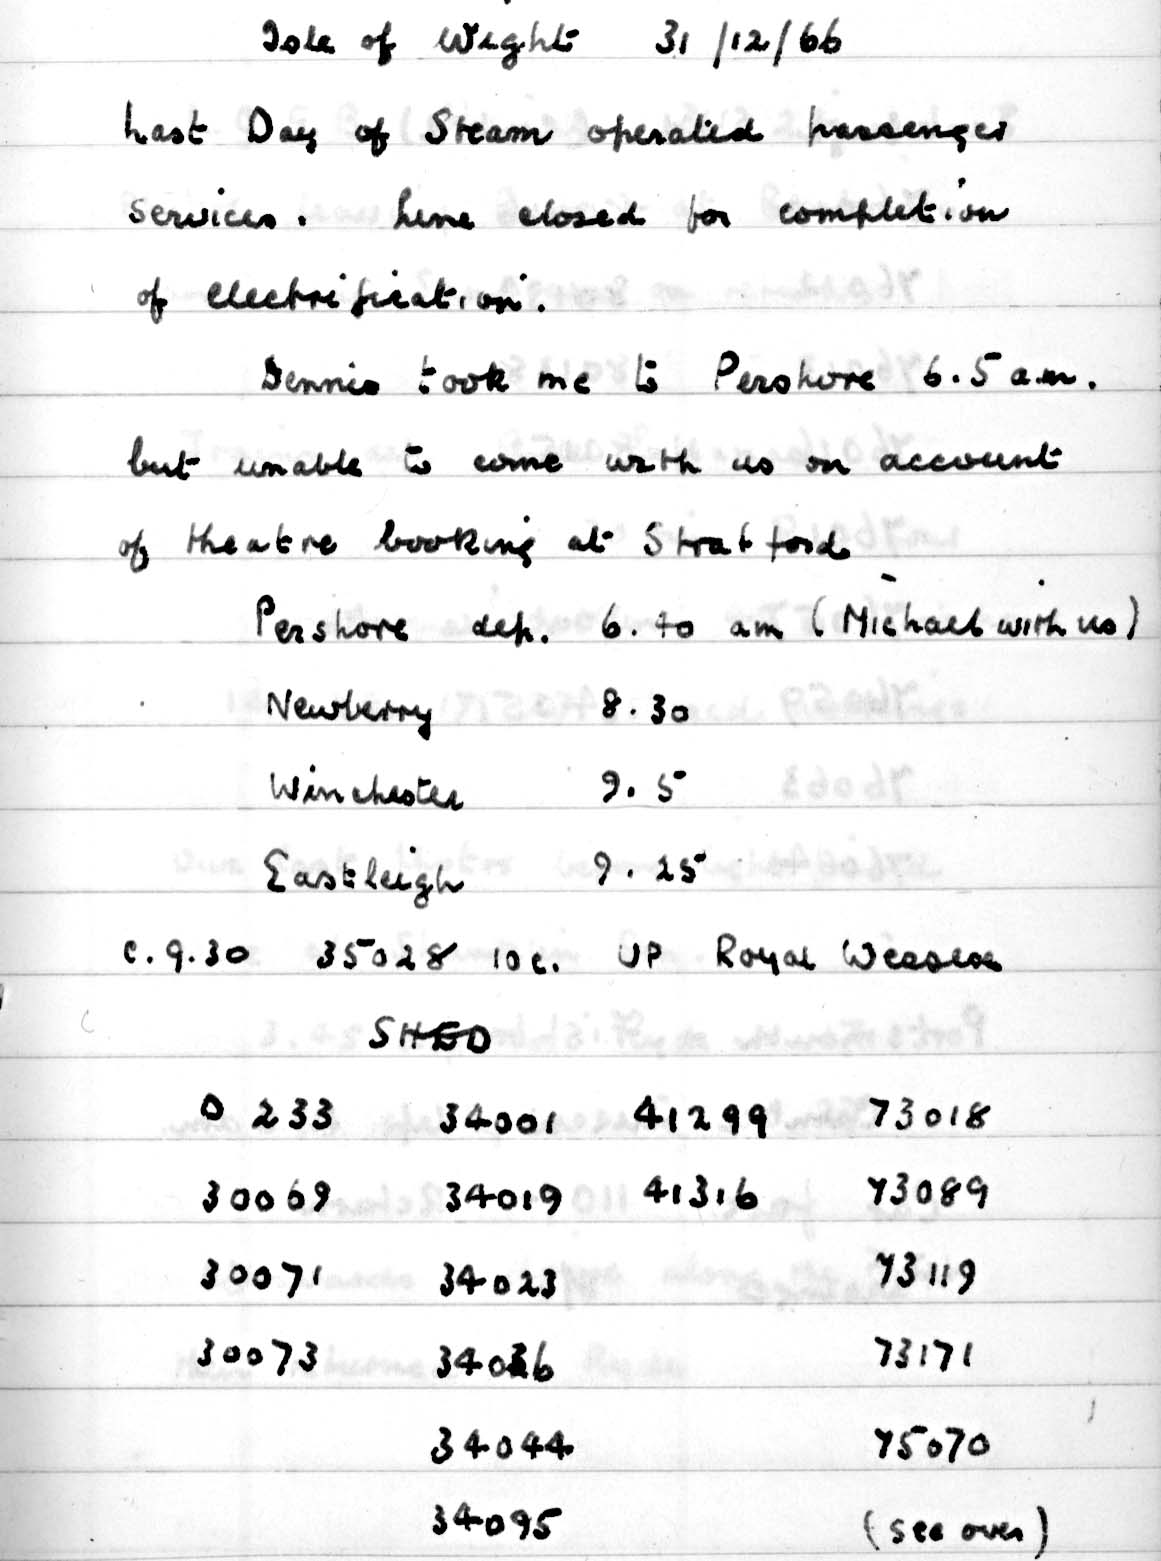 Isle of Wight 31/12/66
Last Day of Steam operated passenger
services. Line closed for completion
of electrification.
Dennis took me to Pershore 6.5 a.m.
but unable to come with us on account
of theatre booking at Stratford
Pershore dep. 6.40 am (Michael with us)
Newberry 8.30
Winchester 9.5
Eastleigh 9.25
c.9.30 35028 10c. UP Royal Wessex
SHED
D 233 34001 41299 73018
30069 34019 41316 73089
30071 34023 73119
30073 34036 73171
34044 75070
34095 (see over)